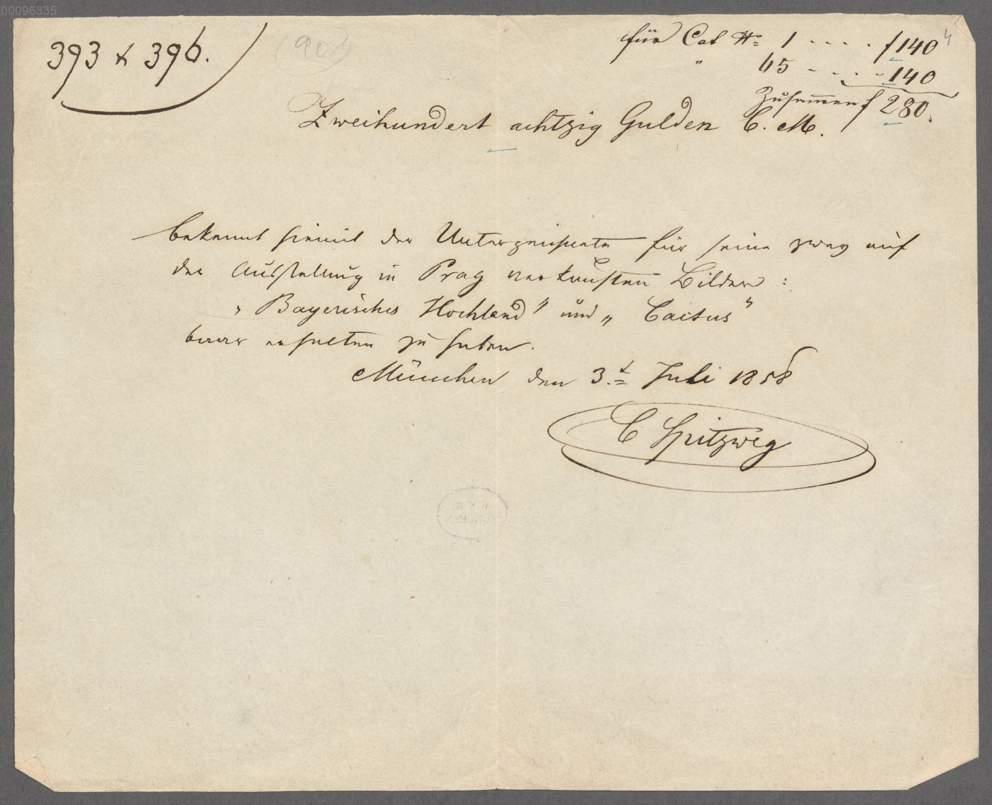 00096335
393 & 396.
für Cat N: 1 .... f 140
" 45 .... 140
Zusammen f 280.
Zweihundert achtzig Gulden C. M.
bekennt hiemit der Unterzeichnete für seine zwey auf
der Ausstellung in Prag verkauften Bilder:
"Bayerisches Hochland" und "Cactus"
baar erhalten zu haben.
München den 3.t Juli 1858
C Spitzweg